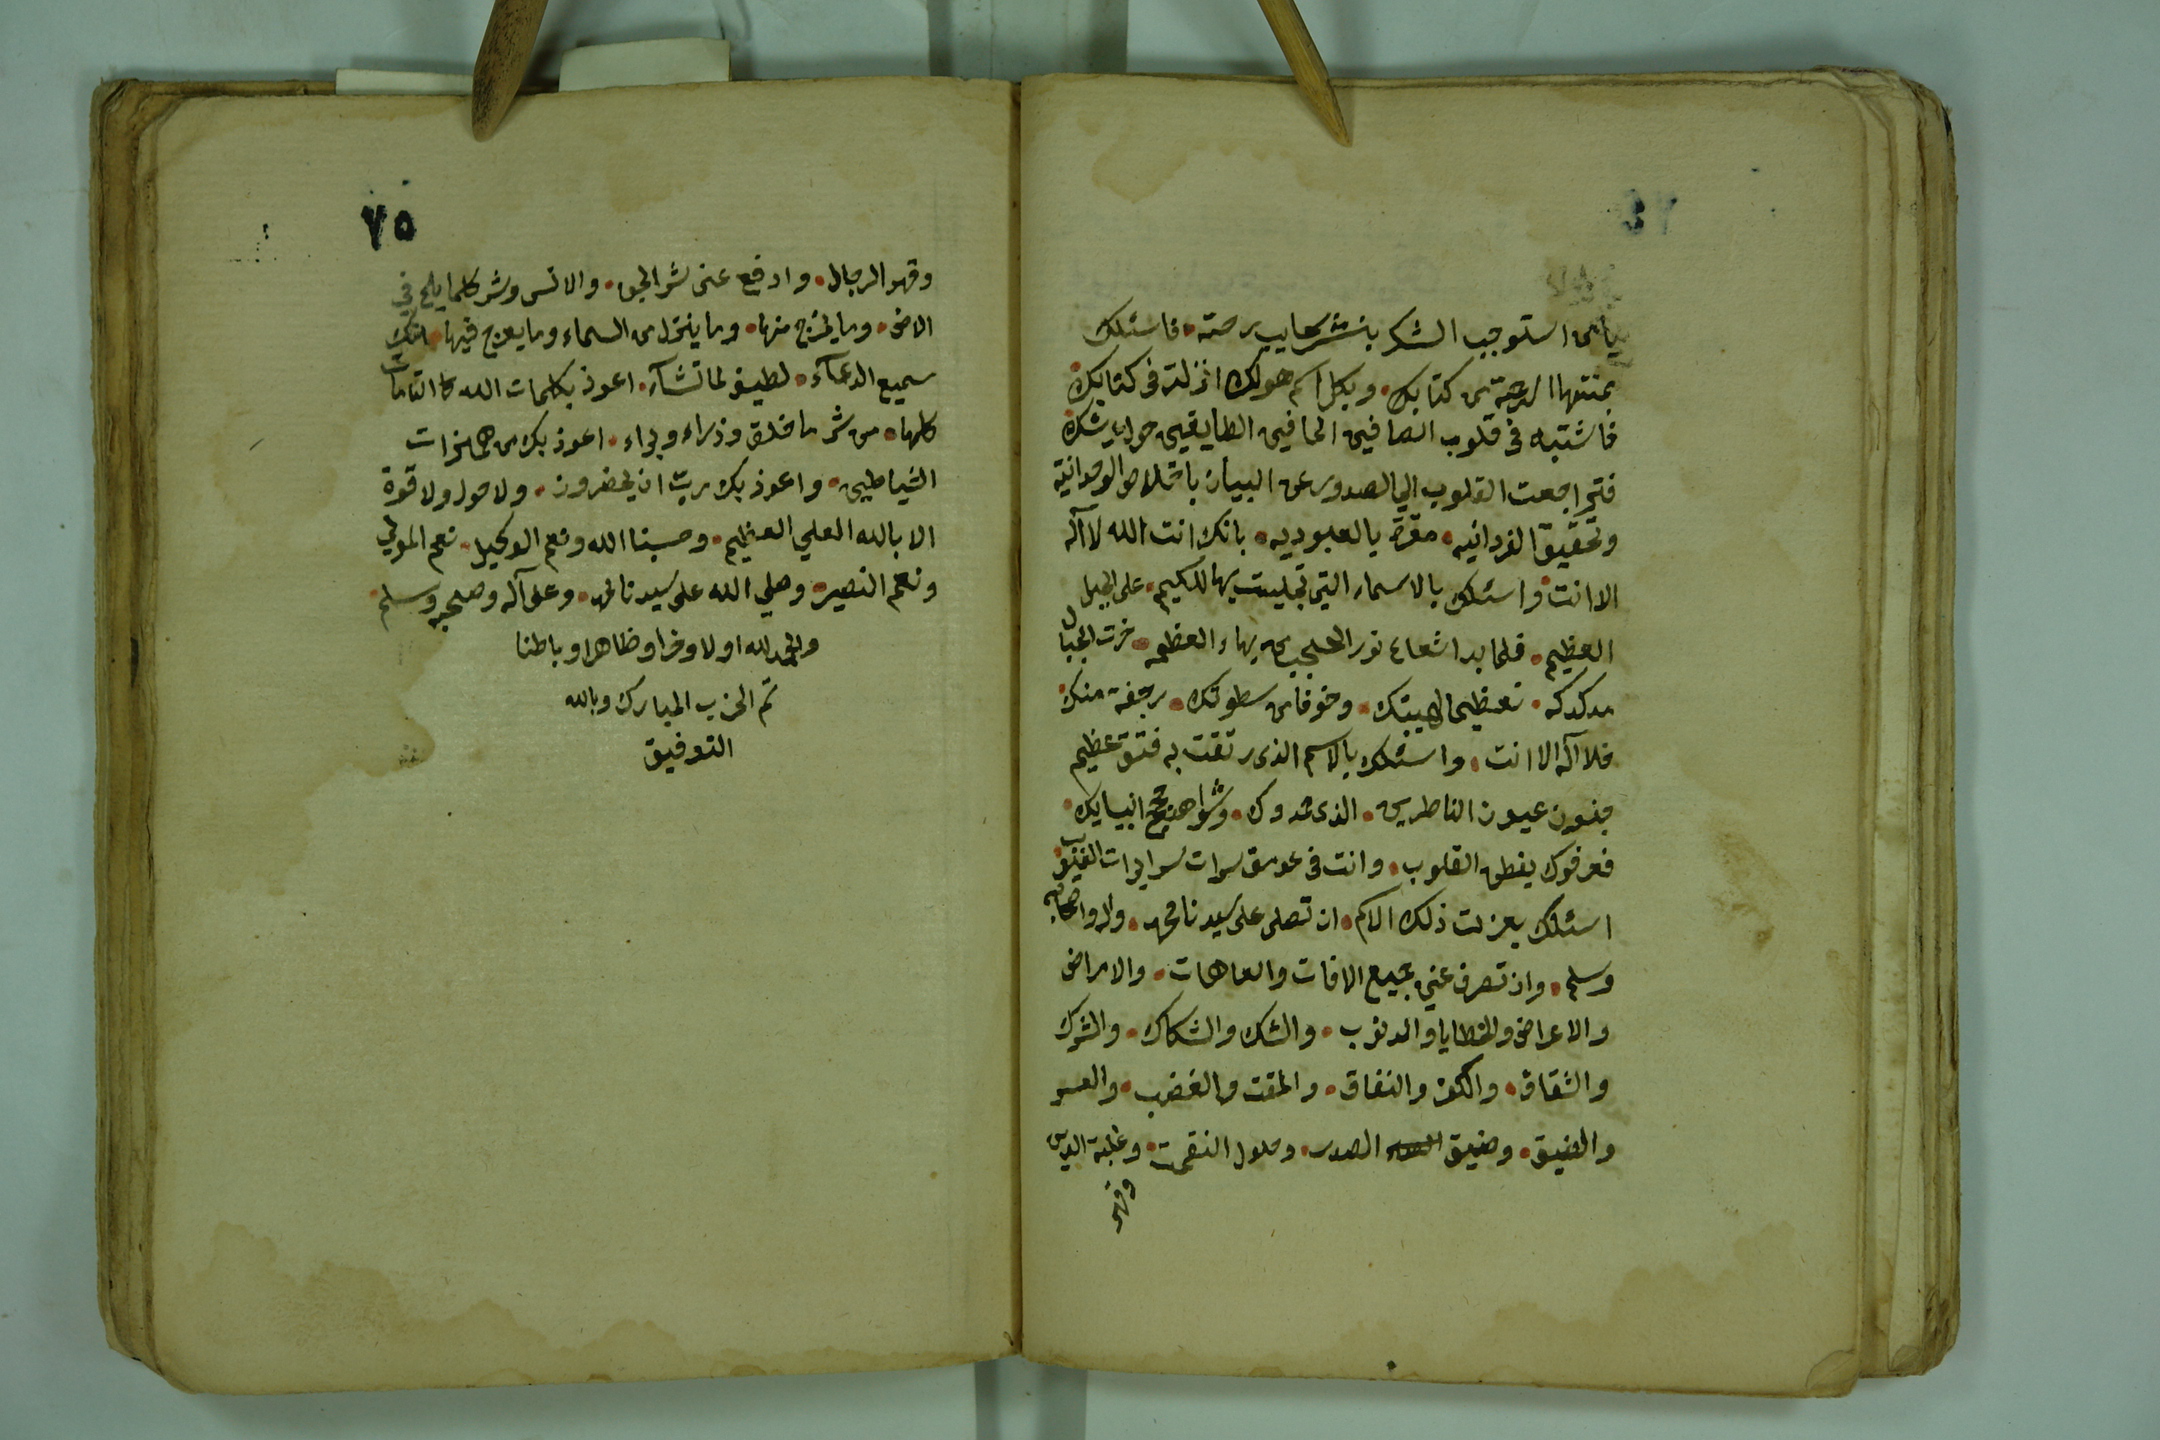 يا من استوجب الشكر بنشر سحايب رحمته فاسئلك
بمنتهاا الرحمة من كتابك وبكل اسم هولك انزلته في كتابك
فاشتبه في قلوب الصافين الحافين الطايفين حول عرشك
فتراجعت القلوب الي الصدور عن البيان باخلاص الوحدانية
وتحقيق الفردانيه مقرة بالعبوديه بانك انت الله لااله
الا انت واسئلك بالاسماء التي تجليت بها للكليم على الجبل
العظيم فلما بدا شعاع نور الحجب من بهاء العظمه خرت الجبال
مدكدكه تعظيما لهيبتك وخوفا من سطوتك رجفة منك
فلا اله الا انت واسئلك بالاسم الذي رتقت به فتق عظيم
جفون عيون الناظرين الذي وشواهد حجج انبيايك
فعرفوك بفطن القلوب وانت في غوامق سرات سرايرات الغيوب
اسئلك بعزت ذلك الاسم ان تصلى على سيدنا محمد واله واصحابه
وسلم وان تصرف عني جميع الافات والعاهات والامراض
والاعراض والخطايا والذنوب والشك والشكاك والشرك
والشقاق والكفر والنفاق والمقت والغضب والعسر
والضيق وضيق الصدر وحلول النقمت وغلبة الدين
وقهر
٧٥
وقهر الرجال وادفع عنى شر الجن والانس وشر كلما يلج في
الارض وما يخرج منها وما ينزل من السماء وما يعرج فيها انك
سميع الدعآء لطيف لما تشآء اعوذ بكلمات الله التامات
كلها من شر ما خلق وذراء وبراء اعوذ بك من همزات
الشياطين واعوذ بك رب ان يحضرون ولا حول ولا قوة
الا بالله العلي العظيم وحسبنا الله ونعم الوكيل نعم المولي
ونعم النصير وصلي الله على سيدنا محمد وعلى آله وصحبه وسلم
والحمد لله اولا وخرا وظاهرا وباطنا
تم الحزب المبارك وبالله
التوفيق